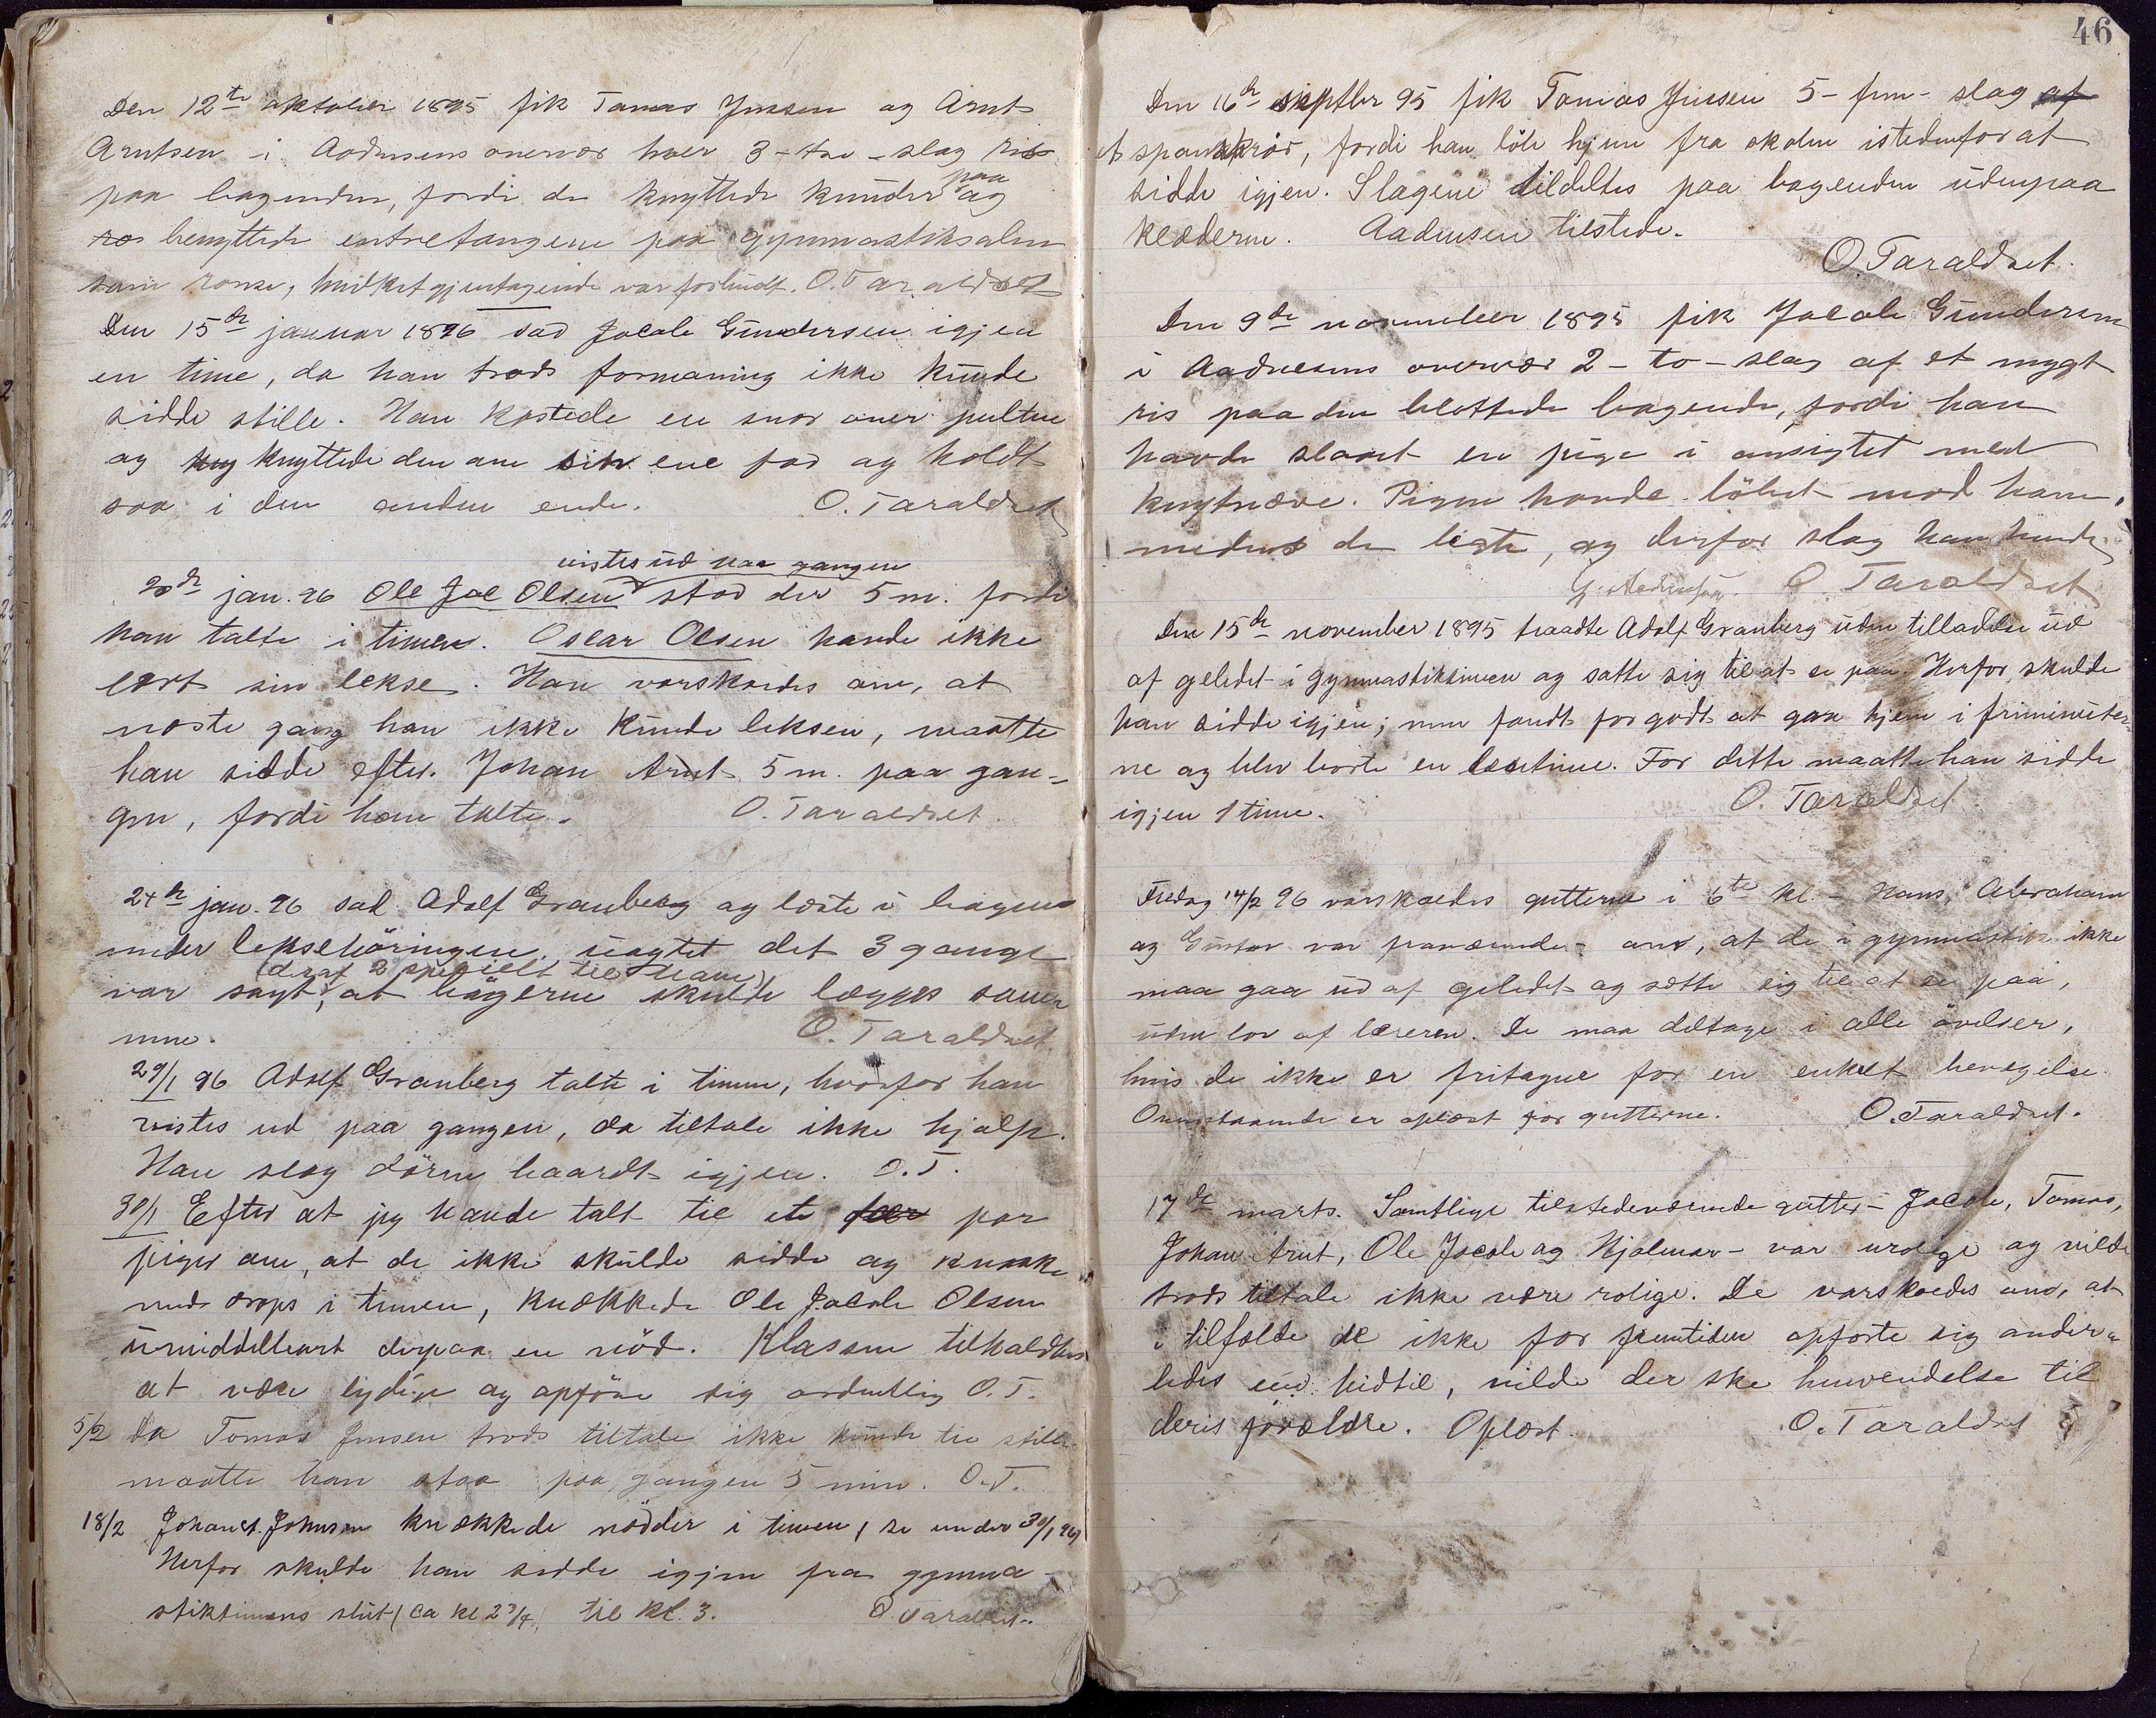 Den 12te oktober 1895 fik Tomas Jensen og Arnt
Arntsen i Aadnesens overvær hver 3 - tre - slag ris
paa bagenden, fordi de knyttede kunder paa og
benyttede entretangene paa gymnastiksalen
som ronse, hvilket gjentagende var forbudt. O. Taraldset
Den 15de januar 1896 sad Jacob Gundersen igjen
en time, da han trods formaning ikke kunde
sidde stille. Han kastede en snor over pulten
og knyttede den om sin ene fod og holdt
saa i den anden ende. O. Taraldset
vistes ud paa gangen
20de jan. 96 Ole Jac Olsen stod der 5 m. fordi
han talte i timen. Oscar Olsen havde ikke
lært sin lekse. Han varskoedes om, at
næste gang han ikke kunde leksen, maatte
han sidde efter. Johan Arnt 5 m. paa gan-
gen, fordi han talte. O. Taraldset.
24de jan. 96 sad Adolf Granberg og læste i bogen
under leksehöringen uagtet det 3 gange
(deraf 2 specielt til ham)
var sagt, at bögerne skulde lægges sam
men. O. Taraldset
29/1 96 Adolf Granberg talte i timen, hvorfor han
vistes ud paa gangen, da tiltale ikke hjalp.
Han slog dören haardt igjen. O. T.
30/1 Efter at jeg havde talt til et par
piger om, at de ikke skulde sidde og knaske
med drops i timen, knækkede Ole Jacob Olsen
umiddelbart derpaa en nöd. Klassen tilholdtes
at være lydige og opföre sig ordentlig O. T.
5/2 Da Tomas Jensen trods tiltale ikke kunde tie stille
maatte han staa paa gangen 5 min. O. T.
18/2 Johan A. Johnsen knækkede nödder i timen, (se under 30/1 96)
Herfor skulde han sidde igjen fra gymna-
stiktimens slut (ca kl 2 3/4) til kl. 3. O. Taraldset.
46
Den 16de septbr 95 fik Tomas Jensen 5 - fem - slag af
et spanskrör, fordi han löb hjem fra skolen istedenfor at
sidde igjen. Slagene tildeltes paa bagenden udenpaa
klæderne. Aadnesen tilstede.
O. Taraldset.
Den 9de november 1895 fik Jacob Gundersen
i Aadnesens overvær 2 - to - slag af et mygt
ris paa den blottede bagende, fordi han
havde slaaet en pige i ansigtet med
knytnæve. Pigen havde löbet mod ham,
medens de legte, og derfor slog han hende.
G. Aadnesen. O. Taraldset
Den 15de november 1895 traadte Adolf Granberg uden tilladelse ud
af geledet i gymnastiktimen og satte sig til at se paa. Herfor skulde
han sidde igjen; men fandt for godt at gaa hjem i friminuter-
ne og blev borte en læsetime. For dette maatte han sidde
igjen 1 time. O. Taraldset
Fredag 14/2 96 varskoedes gutterne i 6te kl. - Hans, Abraham
og Gustav var fraværende - om, at de i gymnastik ikke
maa gaa ud af geledet og sætte sig til at se paa,
uden lov af læreren. De maa deltage i alle övelser,
hvis de ikke er fritagne for en enkelt bevægelse.
Ovenstaaende er oplæst for gutterne. O. Taraldset.
17de marts. Samtlige tilstedeværende gutter - Jacob, Tomas,
Johan Arnt, Ole Jacob og Hjalmar - var urolige og vilde
trods tiltale ikke være rolige. De varskoedes om, at
i tilfælde de ikke for fremtiden opförte sig ander-
ledes end hidtil, vilde der ske henvendelse til
deres forældre. Oplæst. O. Taraldset